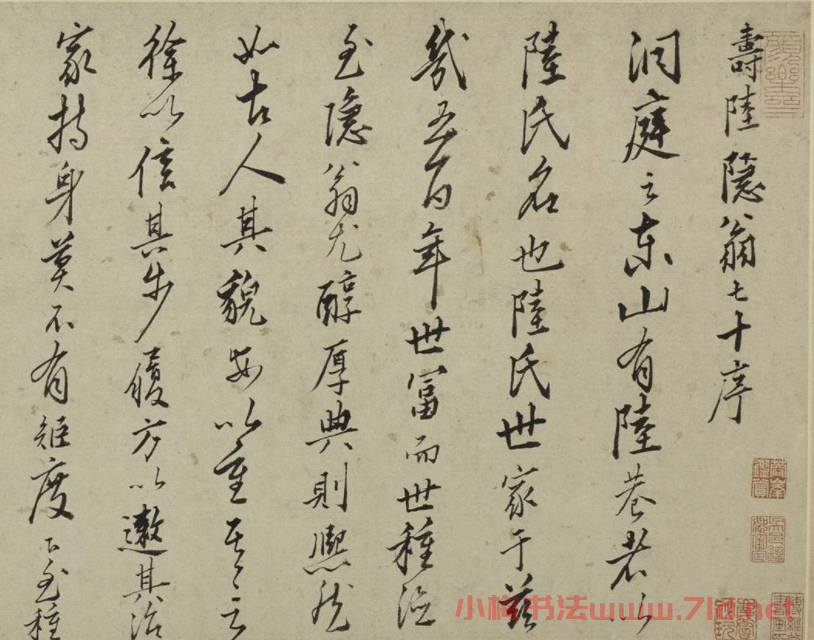 壽陸隱翁七十序
洞庭之東山有陸巷者以
陸氏名也陸氏世家于茲
幾五百年世富而世種德
至隱翁尤醇厚典則熙然
如古人其貌安以重其言
徐以信其步履方以遫其治
家持身莫不有矩度下至種
小楷书法www.7ld.net